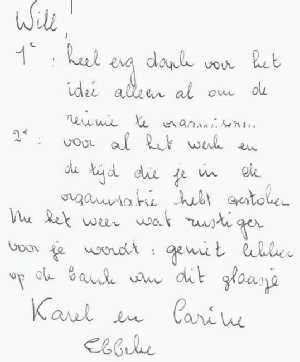 Will,
1e : heel erg dank voor het
ideé alleen al om de
reünie te organiseren...
2e : voor al het werk en
de tijd die je in de
organisatie hebt gestoken
Nu het weer wat rustiger
voor je wordt : geniet lekker
op de bank van dit glaasje
Karel en Carine
Ebbelie